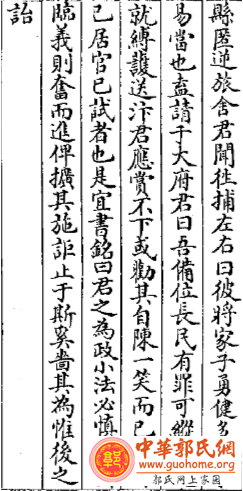 縣匿逆旅舍君聞往捕左右曰彼將家子勇健多
易當也盍請于大府君曰吾備位長民有罪可縱
就縛護送汴君應賞不下或勸其自陳一笑而已
已居官已試者也是宜書銘曰君之為政小法必慎
臨義則奮而進俾擴其施詎止于斯奚嗇其為惟後之
詒
中華郭氏網
www.guohome.org
郭氏网上家园